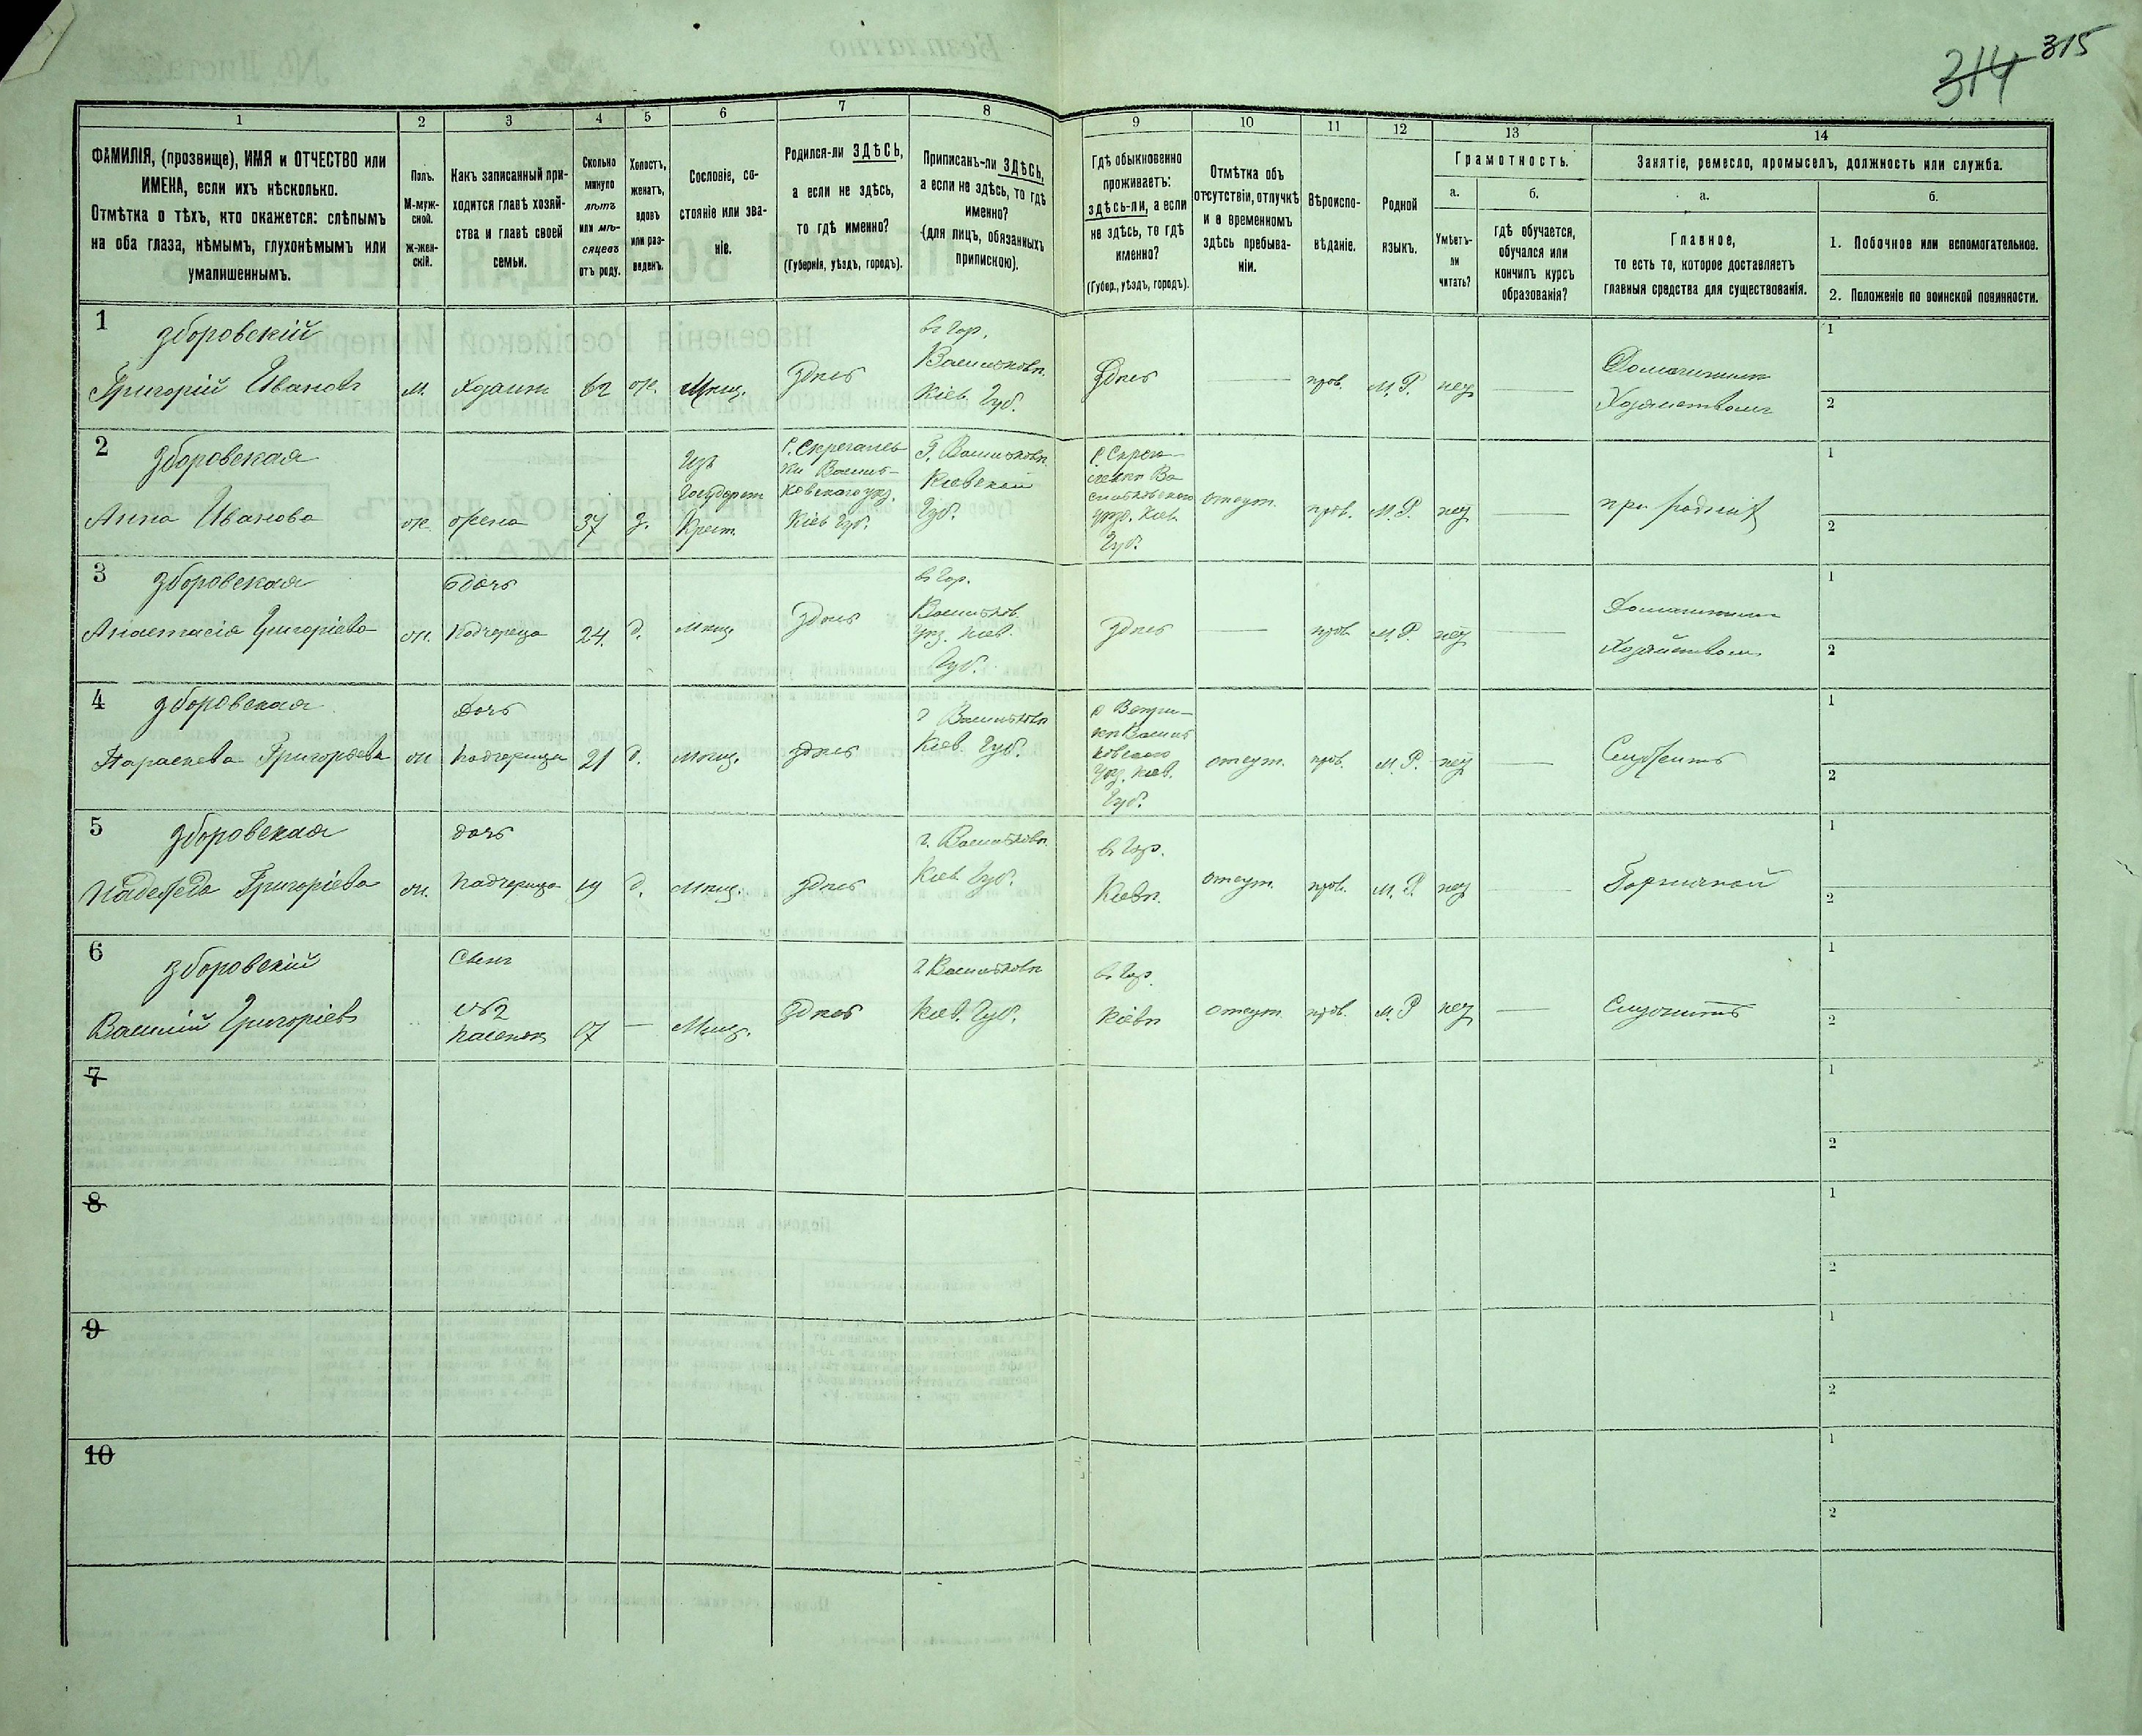 314 315
1 2 3 4 5 6 7 8 9 10 11 12 13 14
ФАМИЛІЯ, (прозвище), ИМЯ и ОТЧЕСТВО или
ИМЕНА, если ихъ нѣсколько.
Отмѣтка о тѣхъ, кто окажется: слѣпымъ
на оба глаза, нѣмымъ, глухонѣмымъ или
умалишеннымъ.
Полъ.
М-муж-
ской.
Ж-жен-
скій.
Какъ записанный при-
ходится главѣ хозяй-
ства и главѣ своей
семьи.
Сколько
минуло
лѣтъ
или мѣ-
сяцевъ
отъ роду.
Холостъ,
женатъ,
вдовъ
или раз-
веденъ.
Сословіе, со-
стояніе или зва-
ніе.
Родился-ли ЗДѢСЬ,
а если не здѣсь,
то гдѣ именно?
(Губернія, уѣздъ, городъ).
Приписанъ-ли ЗДѢСЬ,
а если не здѣсь, то гдѣ
именно?
(для лицъ, обязанныхъ
припискою).
Гдѣ обыкновенно
проживаетъ:
здѣсь-ли, а если
не здѣсь, то гдѣ
именно?
(Губер., уѣздъ, городъ).
Отмѣтка объ
отсутствіи, отлучкѣ
и о временномъ
здѣсь пребыва-
ніи.
Вѣроиспо-
вѣданіе.
Родной
языкъ.
Грамотность.
а.
Умѣетъ-
ли
читать?
б.
гдѣ обучается,
обучался или
кончилъ курсъ
образованія?
Занятіе, ремесло, промыселъ, должность или служба.
а.
Главное,
то есть то, которое доставляетъ
главныя средства для существованія.
б.
1. Побочное или вспомогательное.
2. Положеніе по воинской повинности.
1
Зборовскій
Григорій Ивановъ
м.
Хозяинъ
62
ж.
Мѣщ.
Здѣсь
въ гор.
Васильковѣ
Кіев. Губ.
Здѣсь
прав.
М. Р.
нѣтъ
1
2
2
Зборовская
Анна Иванова
ж.
жена
37
з.
Изъ
Государст.
Крест.
Кіев. Губ.
Г. Васильковѣ
Кіевской
Губ.
Уѣзд. Кіев.
Губ.
отсут.
прав.
М. Р.
нѣтъ
1
2
3
Зборовская
Анастасія Григоріева
ж.
дочь
Падчерица
24.
д.
Мѣщ.
Здѣсь
въ гор.
Васильков.
Уѣз. Кіев.
Губ.
Здѣсь
прав.
М. Р.
нѣтъ
1
2
4
Зборовская
Параскева Григорьева
ж.
Дочь
падчерица
21
д.
Мѣщ.
Здѣсь
г. Васильковѣ
Кіев. Губ.
Уѣз. Кіев.
Губ.
отсут.
прав.
М. Р.
нѣтъ
Служитъ
1
2
5
Зборовская
Надежда Григоріева
ж.
дочь
Падчерица
19
д.
Мѣщ.
Здѣсь
г. Васильковѣ
Кіев. Губ.
въ гор.
Кіевѣ.
отсут.
прав.
М. Р.
нѣтъ
1
2
6
Зборовскій
Василій Григоріевъ
Сынъ
№2
пасенокъ
17
Мѣщ.
Здѣсь
г. Васильковѣ
Кіев. Губ.
въ гор.
Кіевѣ
отсут.
прав.
М. Р
нѣтъ
Служитъ
1
2
7
1
2
8
1
2
9
1
2
10
1
2